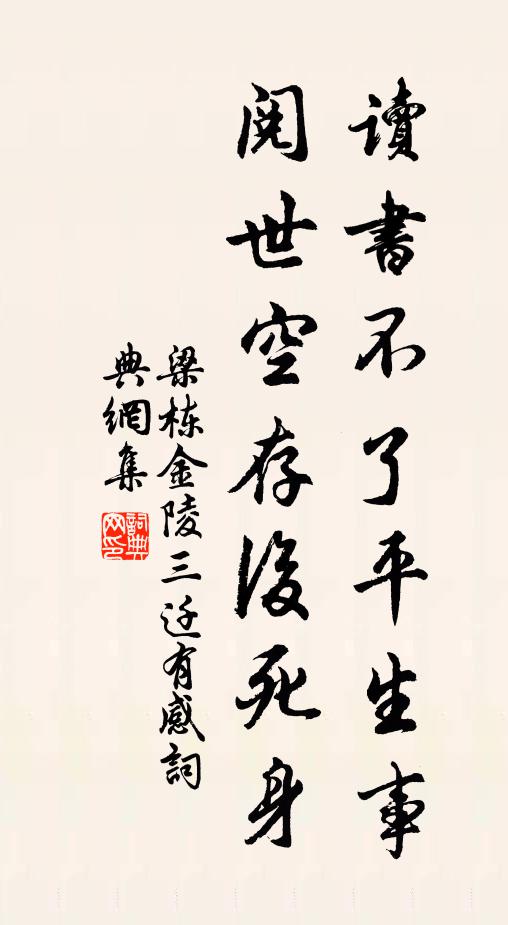 讀書不了平生事
閱世空存後死身
梁栋金陵三迁有感詞
典網集
詞典
网印